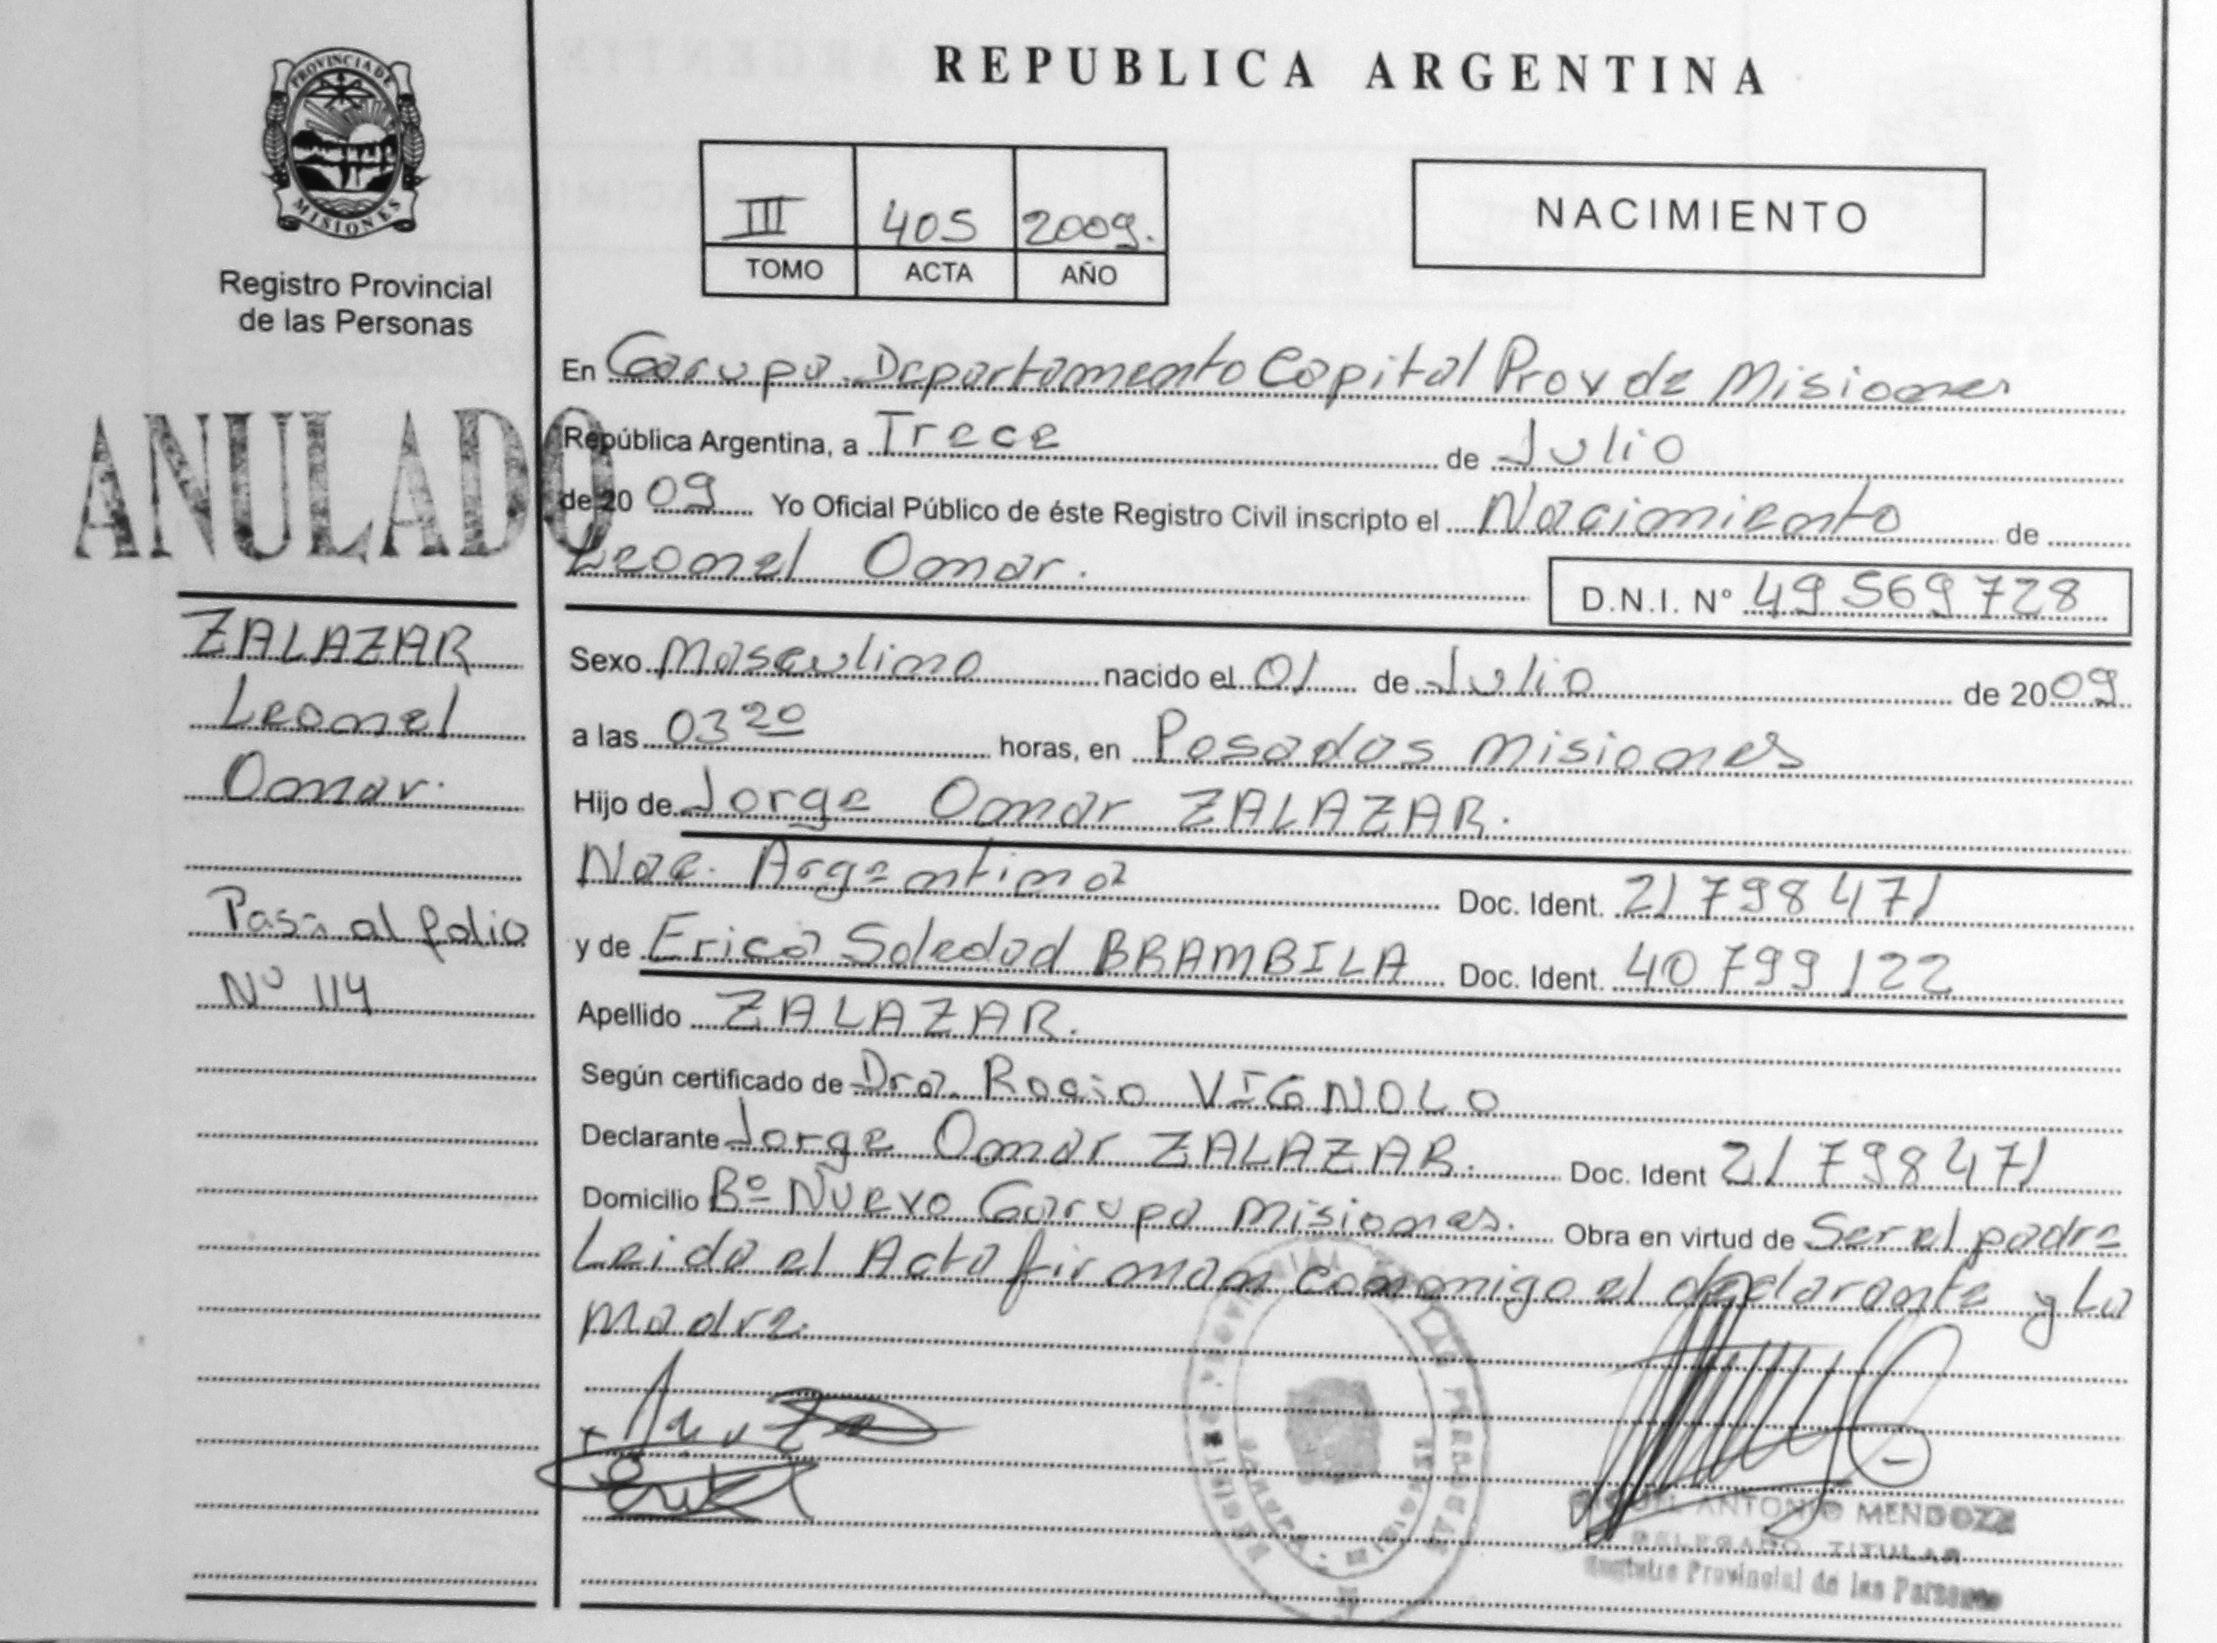 PROVINCIA DE
MISIONES
Registro Provincial
de las Personas
ANULADO
ZALAZAR
Leonel
Omar.
Pasa al folio
Nº 114
REPUBLICA ARGENTINA
III 405 2009.
TOMO ACTA AÑO
NACIMIENTO
En Garupa Departamento Capital Prov de Misiones
República Argentina, a Trece de Julio
de 20 09 Yo Oficial Público de éste Registro Civil inscripto el Nacimiento de
Leonel Omar.
D.N.I. Nº 49 569 728
Sexo Masculino nacido el 01 de Julio de 20 09
a las 03 20 horas, en Posadas Misiones
Hijo de Jorge Omar ZALAZAR.
Nac. Argentina Doc. Ident. 21 798 471
y de Erica Soledad BRAMBILA Doc. Ident. 40 799 122
Apellido ZALAZAR.
Según certificado de Dra. Rocio VIGNOLO
Declarante Jorge Omar ZALAZAR. Doc. Ident 21 798 471
Domicilio Bº Nuevo Garupa Misiones. Obra en virtud de Ser el padre
Leido el Acta firman conmigo el declarante y La
Madre.
MIGUEL ANTONIO MENDOZA
DELEGADO TITULAR
Registro Provincial de las Personas